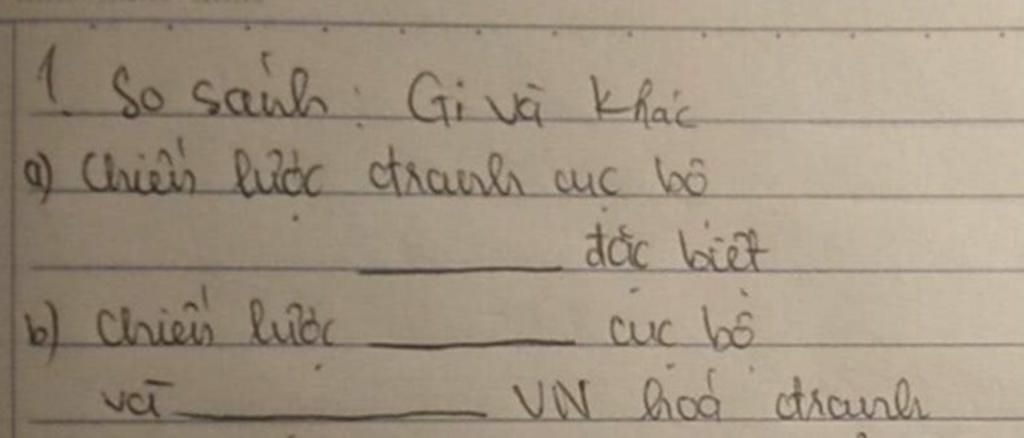 1. So sánh: Gi và khác
a) Chiến lược ctranh cục bộ
_______ đặc biệt
b) Chiến lược _______ cục bộ
và _______ VN hoá ctranh